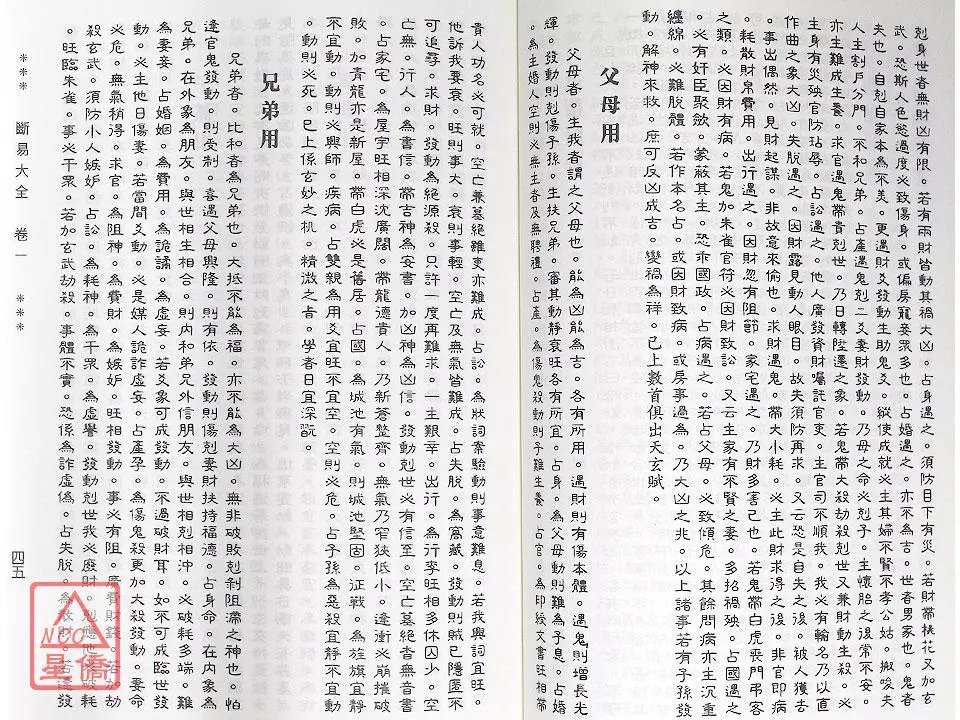 剋身世者無財凶有限。若有兩財皆動其禍大凶。占身遇之。須防目下有災。若財帶桃花又加玄
武。恐斯人色慾過度必致傷身。或偏房寵妾眾多也。占婚遇之。亦不為吉。世者男家也。鬼者
夫也。自剋自家本為不美。更遇財爻發動生助鬼爻。縱使成就必主其婦不賢不孝公姑。搬唆夫
人主割戶分門。不和兄弟。占產遇鬼剋二爻妻財發動。乃母之命必剋子。主懷胎之後常不安。
亦主難生養。求官遇鬼帶貴剋世。乃日轉陞遷之象。若鬼帶大殺劫殺剋世又兼財動生殺。必
主身有災殃官防玷辱。占訟遇之。他人廣發資財囑託官吏。主官司不順我。我必有輸名乃以直
作曲之象大凶。失脫遇之。因財露見動人眼目。故失須防再來。又云恐是自失之後。被人獲去
。事出偶然。見財起謀。非故意來偷也。求財遇鬼。帶大小耗。必主此財求得之後。非官即病
。耗散財帛費用。出行遇之。因財忽有阻節。家宅遇之。乃財多害己也。若鬼帶白虎喪門弔客
之類。必因財有病。若鬼加朱雀官符必因財致訟。又云主家有不賢之妻。多招禍殃。占國遇之
。必有奸臣聚斂。蒙蔽其主。恐乖國政。占病遇之。若占父母。必致傾危。其餘問病亦主沉重
纏綿。必難脫體。若作本名占。或因財致病。或房事過為。乃大凶之兆。以上諸事若有子孫發
動。解神來救。庶可反凶成吉。變禍為祥。已上數首俱出天玄賦。
父母用
父母者。生我者謂之父母也。能為凶能為吉。各有所用。遇財則有傷本體。遇鬼則增長光
輝。發動則剋傷子孫。生扶兄弟。審其動靜衰旺各有所宜。占身。為父母發動則難為子息。占婚
。為主婚人空則必無主者及無聘禮。占產。為傷鬼殺動則子難生養。占官。為印綬文書旺相帶
貴人功名必可就。空亡兼墓絕雖吏亦難成。占訟。為狀詞案驗動則事意難息。若我興詞宜旺。
他訴我要衰。旺則事大。衰則事輕。空亡及無氣皆難成。占失脫。為窩藏。發動則賊已隱匿不
可追尋。求財。發動為絕源殺。只許一度再難求。一主艱辛。出行。為行李旺相多休囚少。空
亡無。行人。為書信。帶吉神為安書。加凶神為凶信。發動剋世必有信至。空亡墓絕者無音書
。占家宅。為屋宇旺相深沈廣闊。帶龍德貴人。乃新蓋整齊。無氣乃窄狹低小。逢衝必崩摧破
敗。加青龍亦是新屋。帶白虎必是舊居。占國。為城池有氣。則城池堅固。征戰。為旌旗宜靜
不宜動。動則必興師。疾病。占雙親為用爻宜旺不宜空。空則必危。占子孫為惡殺宜靜不宜動
。動則必死。已上係玄妙之机。精微之者。學者日宜深翫。
兄弟用
兄弟者。比和者為兄弟也。大抵不能為福。亦不能為大凶。無非破敗剋剝阻滯之神也。怕
逢官鬼發動。則受制。喜遇父母興隆。則有依。發動則傷剋妻財扶持福德。占身命。在內象為
兄弟。在外象為朋友。與世相生相合。則內和弟兄外信朋友。與世相剋相沖。必破耗多端。難
為妻妾。占婚姻。為費用。為詭譎。為虛妄。若爻象可成發動。不過破財耳。如不可成臨世發
動。必生他日傷妻。若當間爻動。必是媒人詭詐虛妄。占產孕。為傷鬼殺更加大殺發動。妻命
必危。無氣稍得。求官。為阻神。為費財。為嫉妒。旺相發動。事必有阻。廣費財錢。若加劫
殺玄武。須防小人嫉妒。占訟。為耗神。為干眾。為虛譽。發動剋世我必廢財。剋應他必破耗
。旺臨朱雀。事必干眾。若加玄武劫殺。事體不實。恐係為詐虛偽。占失脫。為散財。若逢發
*** 斷易大全 卷一 *** 四五
NCC
星僑